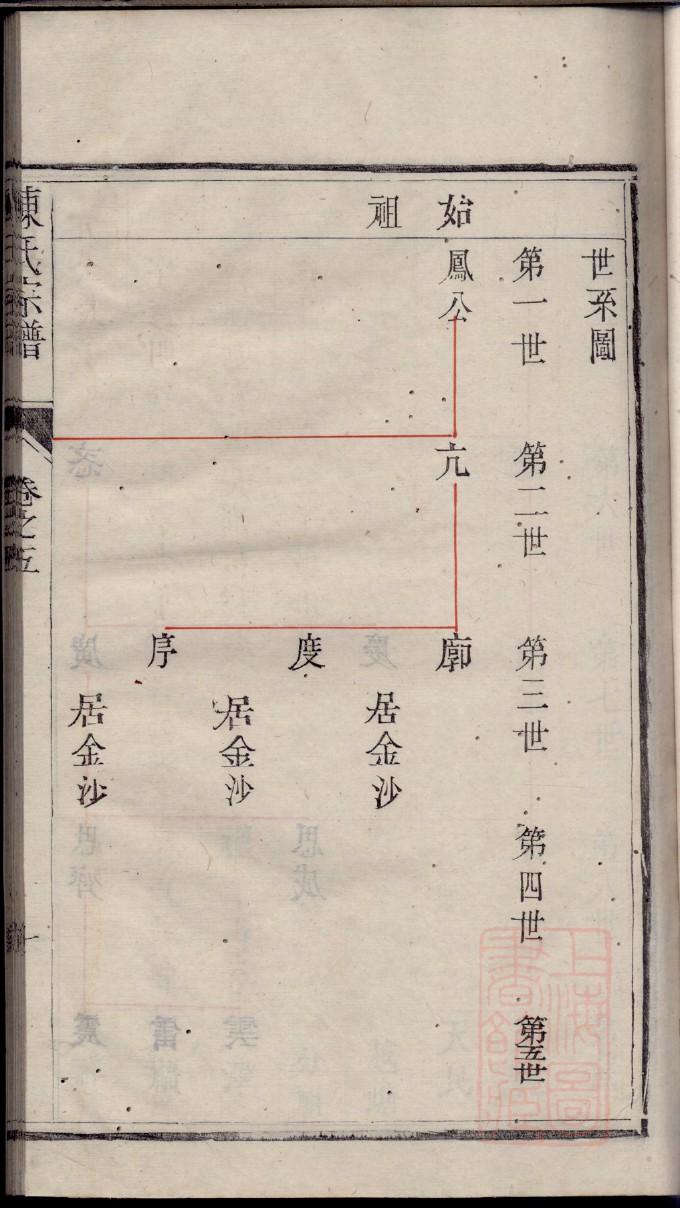 世系圖
第一世
第二世
第三世
第四世
第五世
始祖
鳳公
亢
廓
居金沙
度
居金沙
序
居金沙
陳氏宗譜
卷之五
一
上海圖書館藏